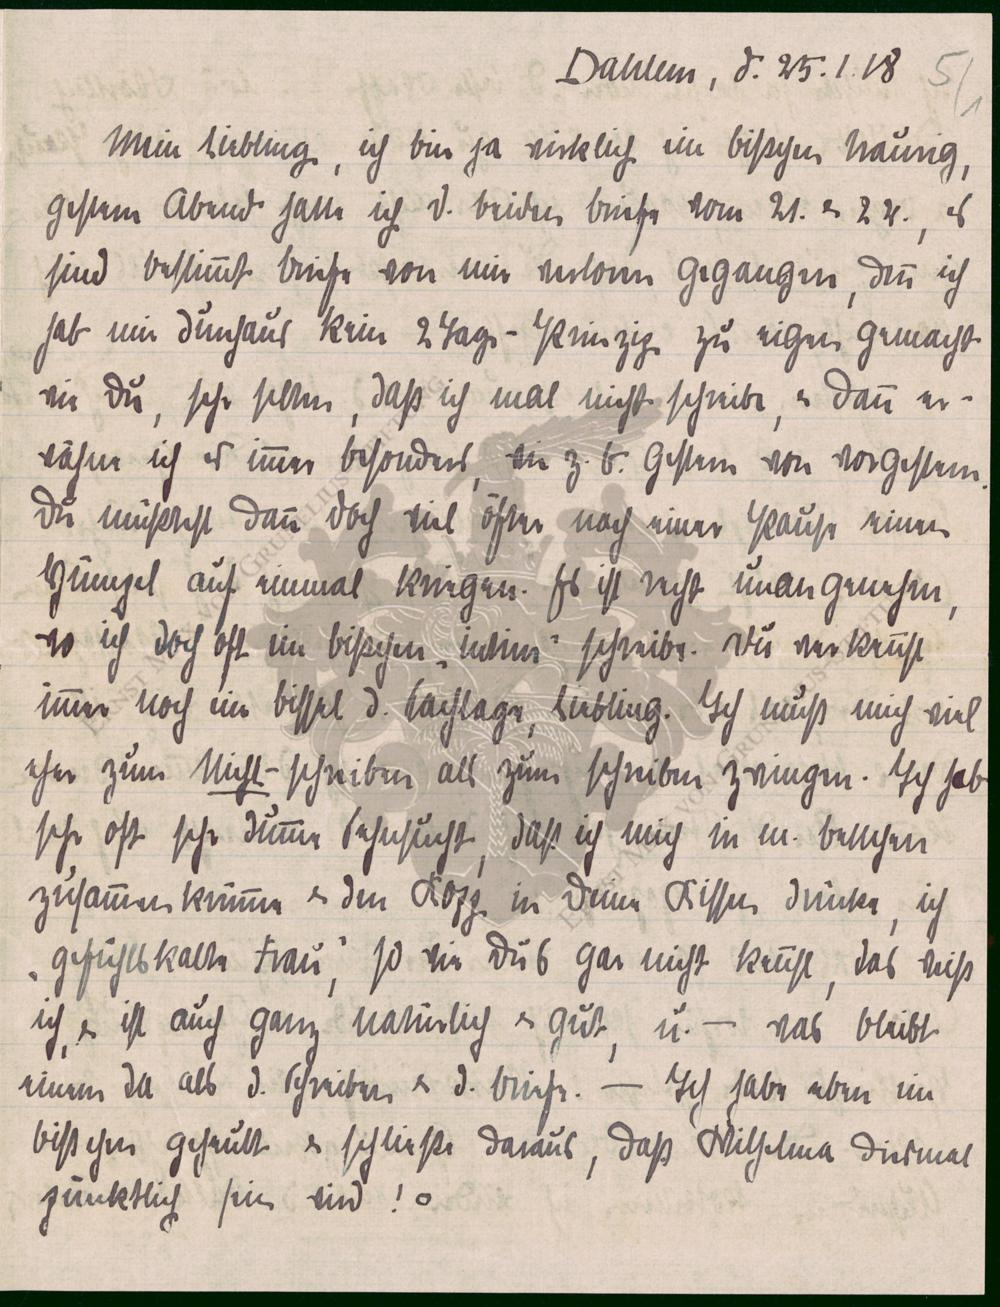 Dahlem, d. 25.1.18
5/1
Mein Liebling, ich bin ja wirklich ein bißchen traurig,
gestern Abend hatte ich d. beiden briefe vom 21. & 22., es
sind bestim̅t briefe von mir verloren gegangen, den̅ ich
hab mir durchaus kein 2 Tage-Prinzip zu eigen gemacht
wie Du, sehr selten, daß ich mal nicht schreibe, & dan̅ er-
wähne ich es im̅er besonders, wie z. b. gestern von vorgestern.
Du müßtest dan̅ doch viel öfter nach einer Pause einen
auf einmal kriegen. Es ist recht unangenehm,
wo ich doch oft ein bißchen „intim" schreibe. Du verken̅st
im̅er noch ein bissel d. Sachlage, Liebling. Ich muß mich viel
eher zum Nicht-schreiben als zum schreiben zwingen. Ich hab
sehr oft sehr dum̅e Sehnsucht, daß ich mich in m. bettchen
zusam̅enkrüm̅e & den Kopf in Deine Kissen drücke, ich
„gefühlskalte Frau", so wie Dus gar nicht ken̅st, das weiß
ich, & ist auch ganz natürlich & gut, u. — was bleibt
einem da als d. Schreiben & d. briefe. — Ich habe eben ein
bißchen geheult & schließe daraus, daß Wilhelma diesmal
pünktlich sein wird! o
ERNST M VON GRUNELIUS-STIFTUNG